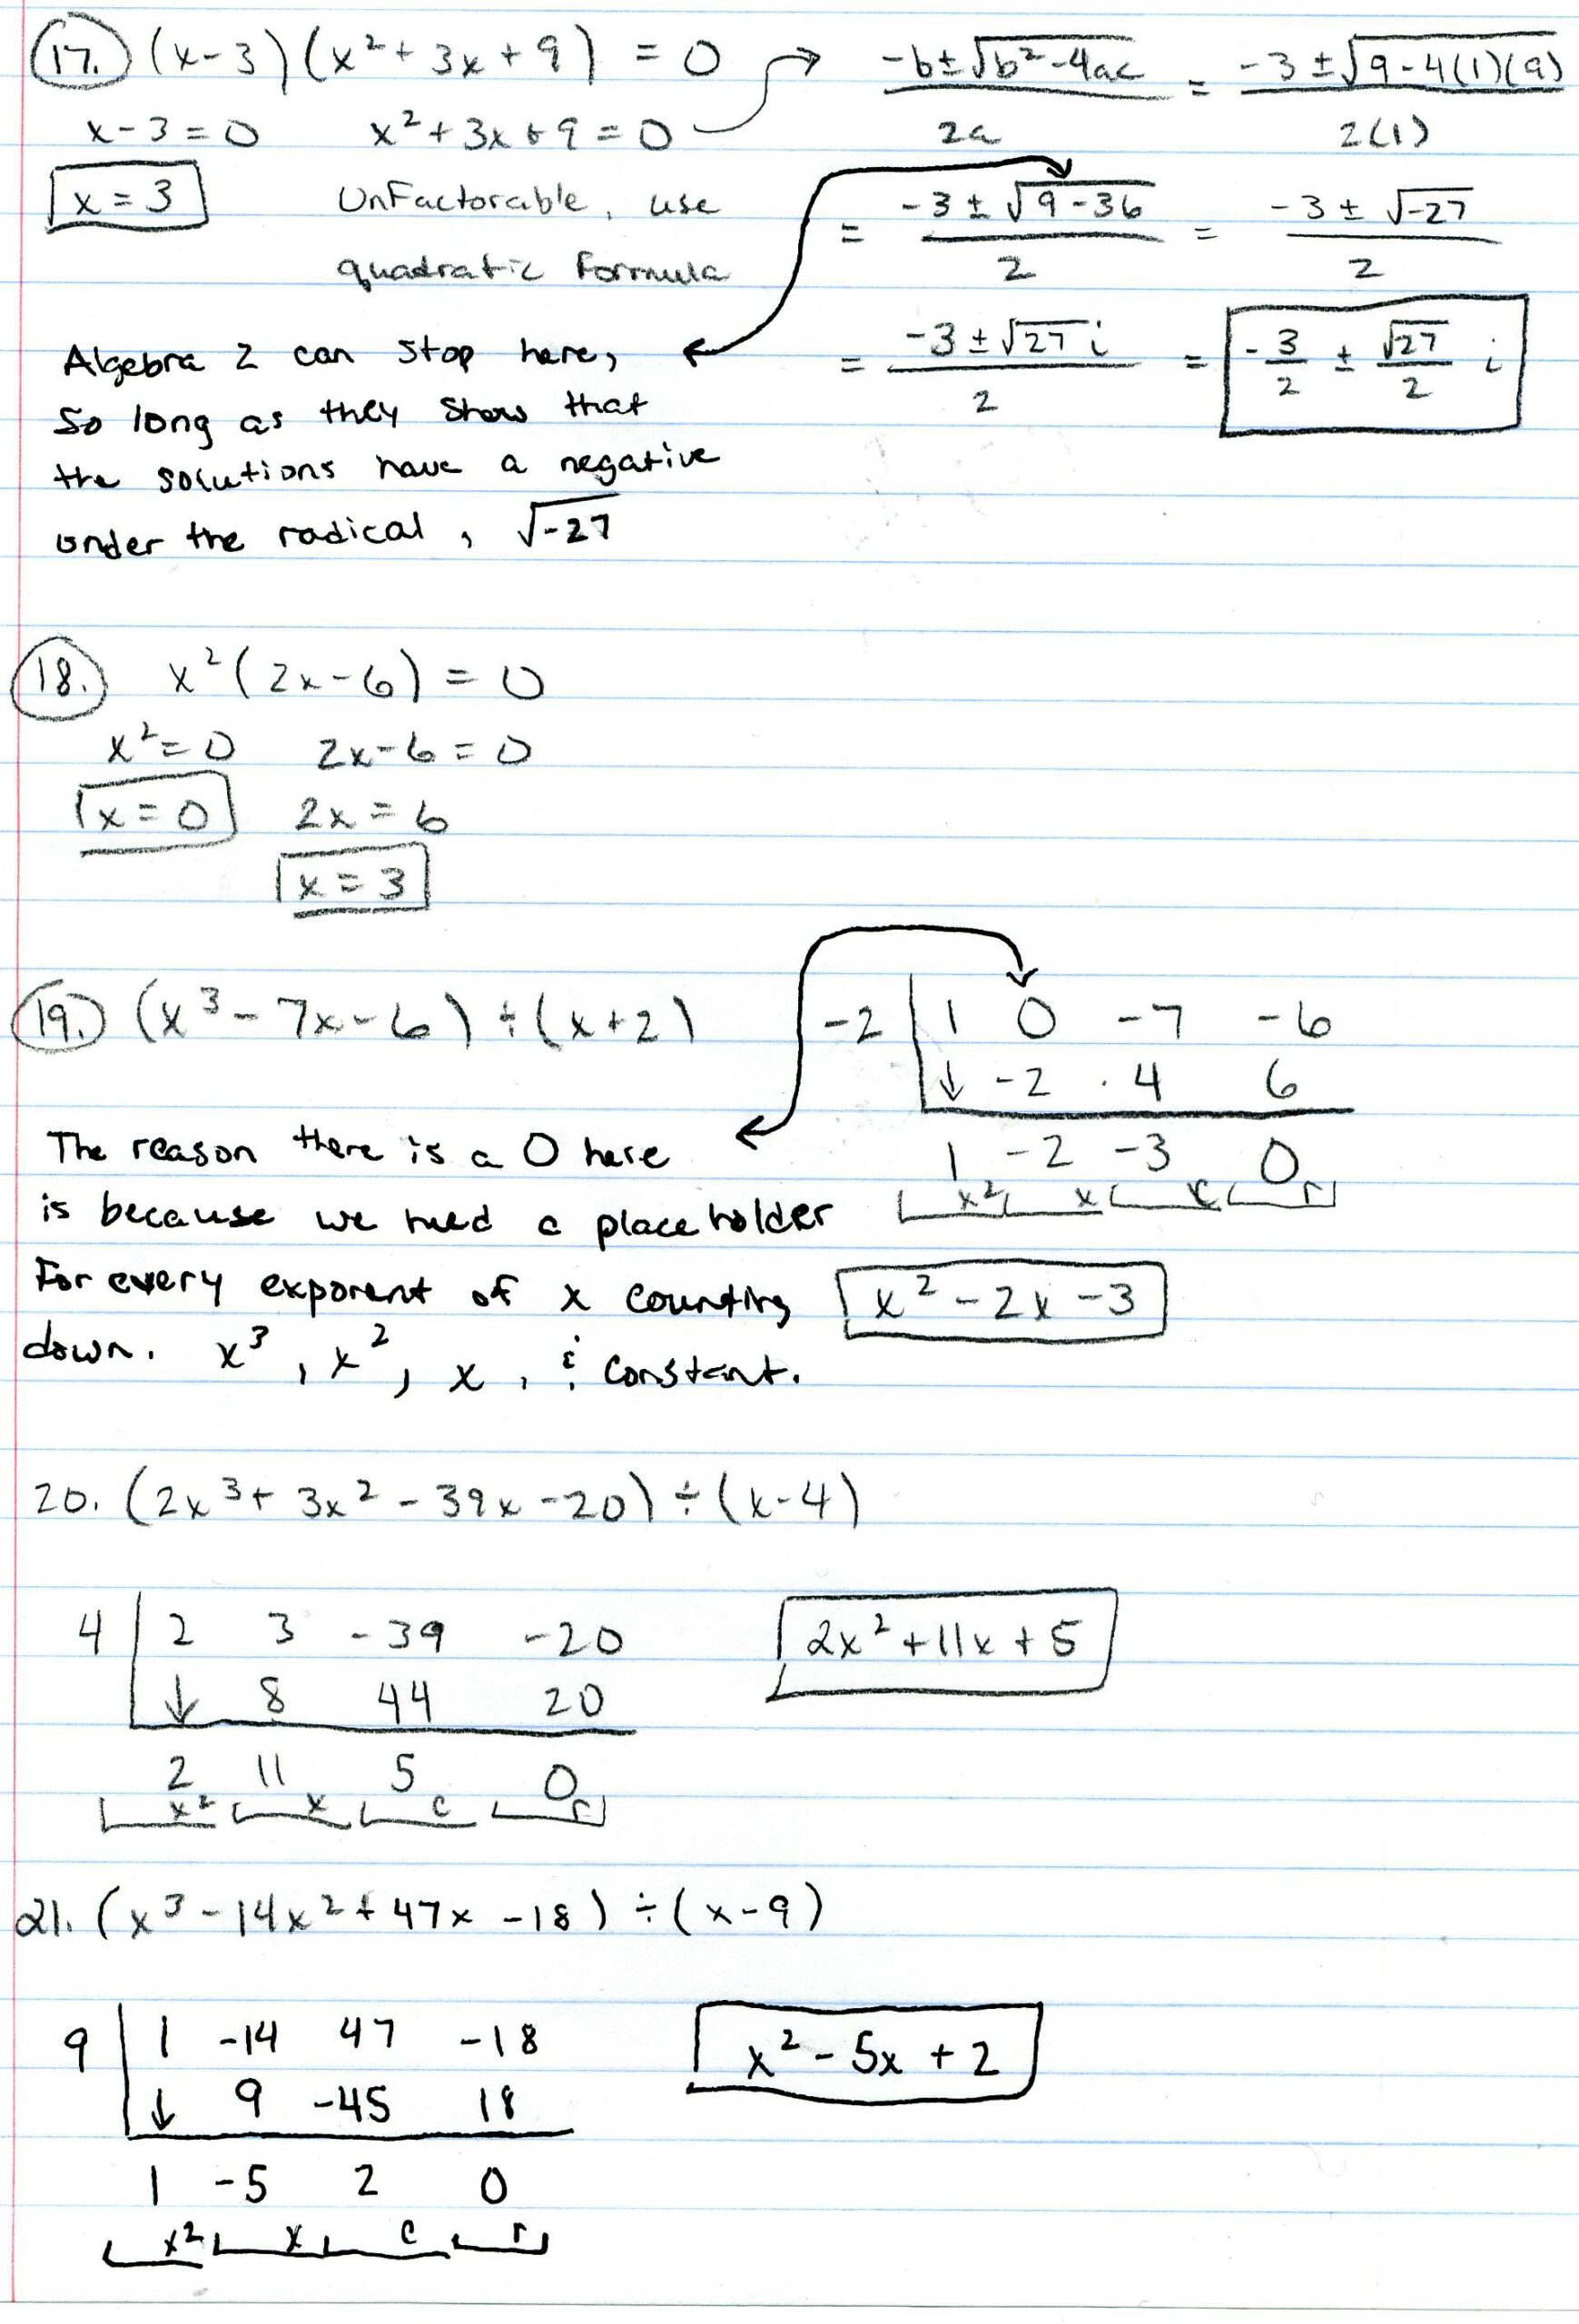 17. (x-3)(x²+3x+9) = 0 → (-b±√(b²-4ac))/2a = (-3±√(9-4(1)(9)))/2(1)
x-3=0   x²+3x+9=0
x=3   Unfactorable, use
quadratic formula
= (-3±√(9-36))/2 = (-3±√-27)/2
= (-3±√27 i)/2 = -3/2 ± √27/2 i
Algebra 2 can stop here,
so long as they show that
the solutions have a negative
under the radical, √-27
18. x²(2x-6) = 0
x²=0   2x-6=0
x=0   2x=6
x=3
19. (x³-7x-6) ÷ (x+2)
-2 | 1 0 -7 -6
↓ -2 4 6
1 -2 -3 0
x² x c r
The reason there is a 0 here
is because we need a place holder
for every exponent of x counting
down. x³, x², x, & constant.
x²-2x-3
20. (2x³+3x²-39x-20) ÷ (x-4)
4 | 2 3 -39 -20
↓ 8 44 20
2 11 5 0
x² x c r
2x²+11x+5
21. (x³-14x²+47x-18) ÷ (x-9)
9 | 1 -14 47 -18
↓ 9 -45 18
1 -5 2 0
x² x c r
x²-5x+2